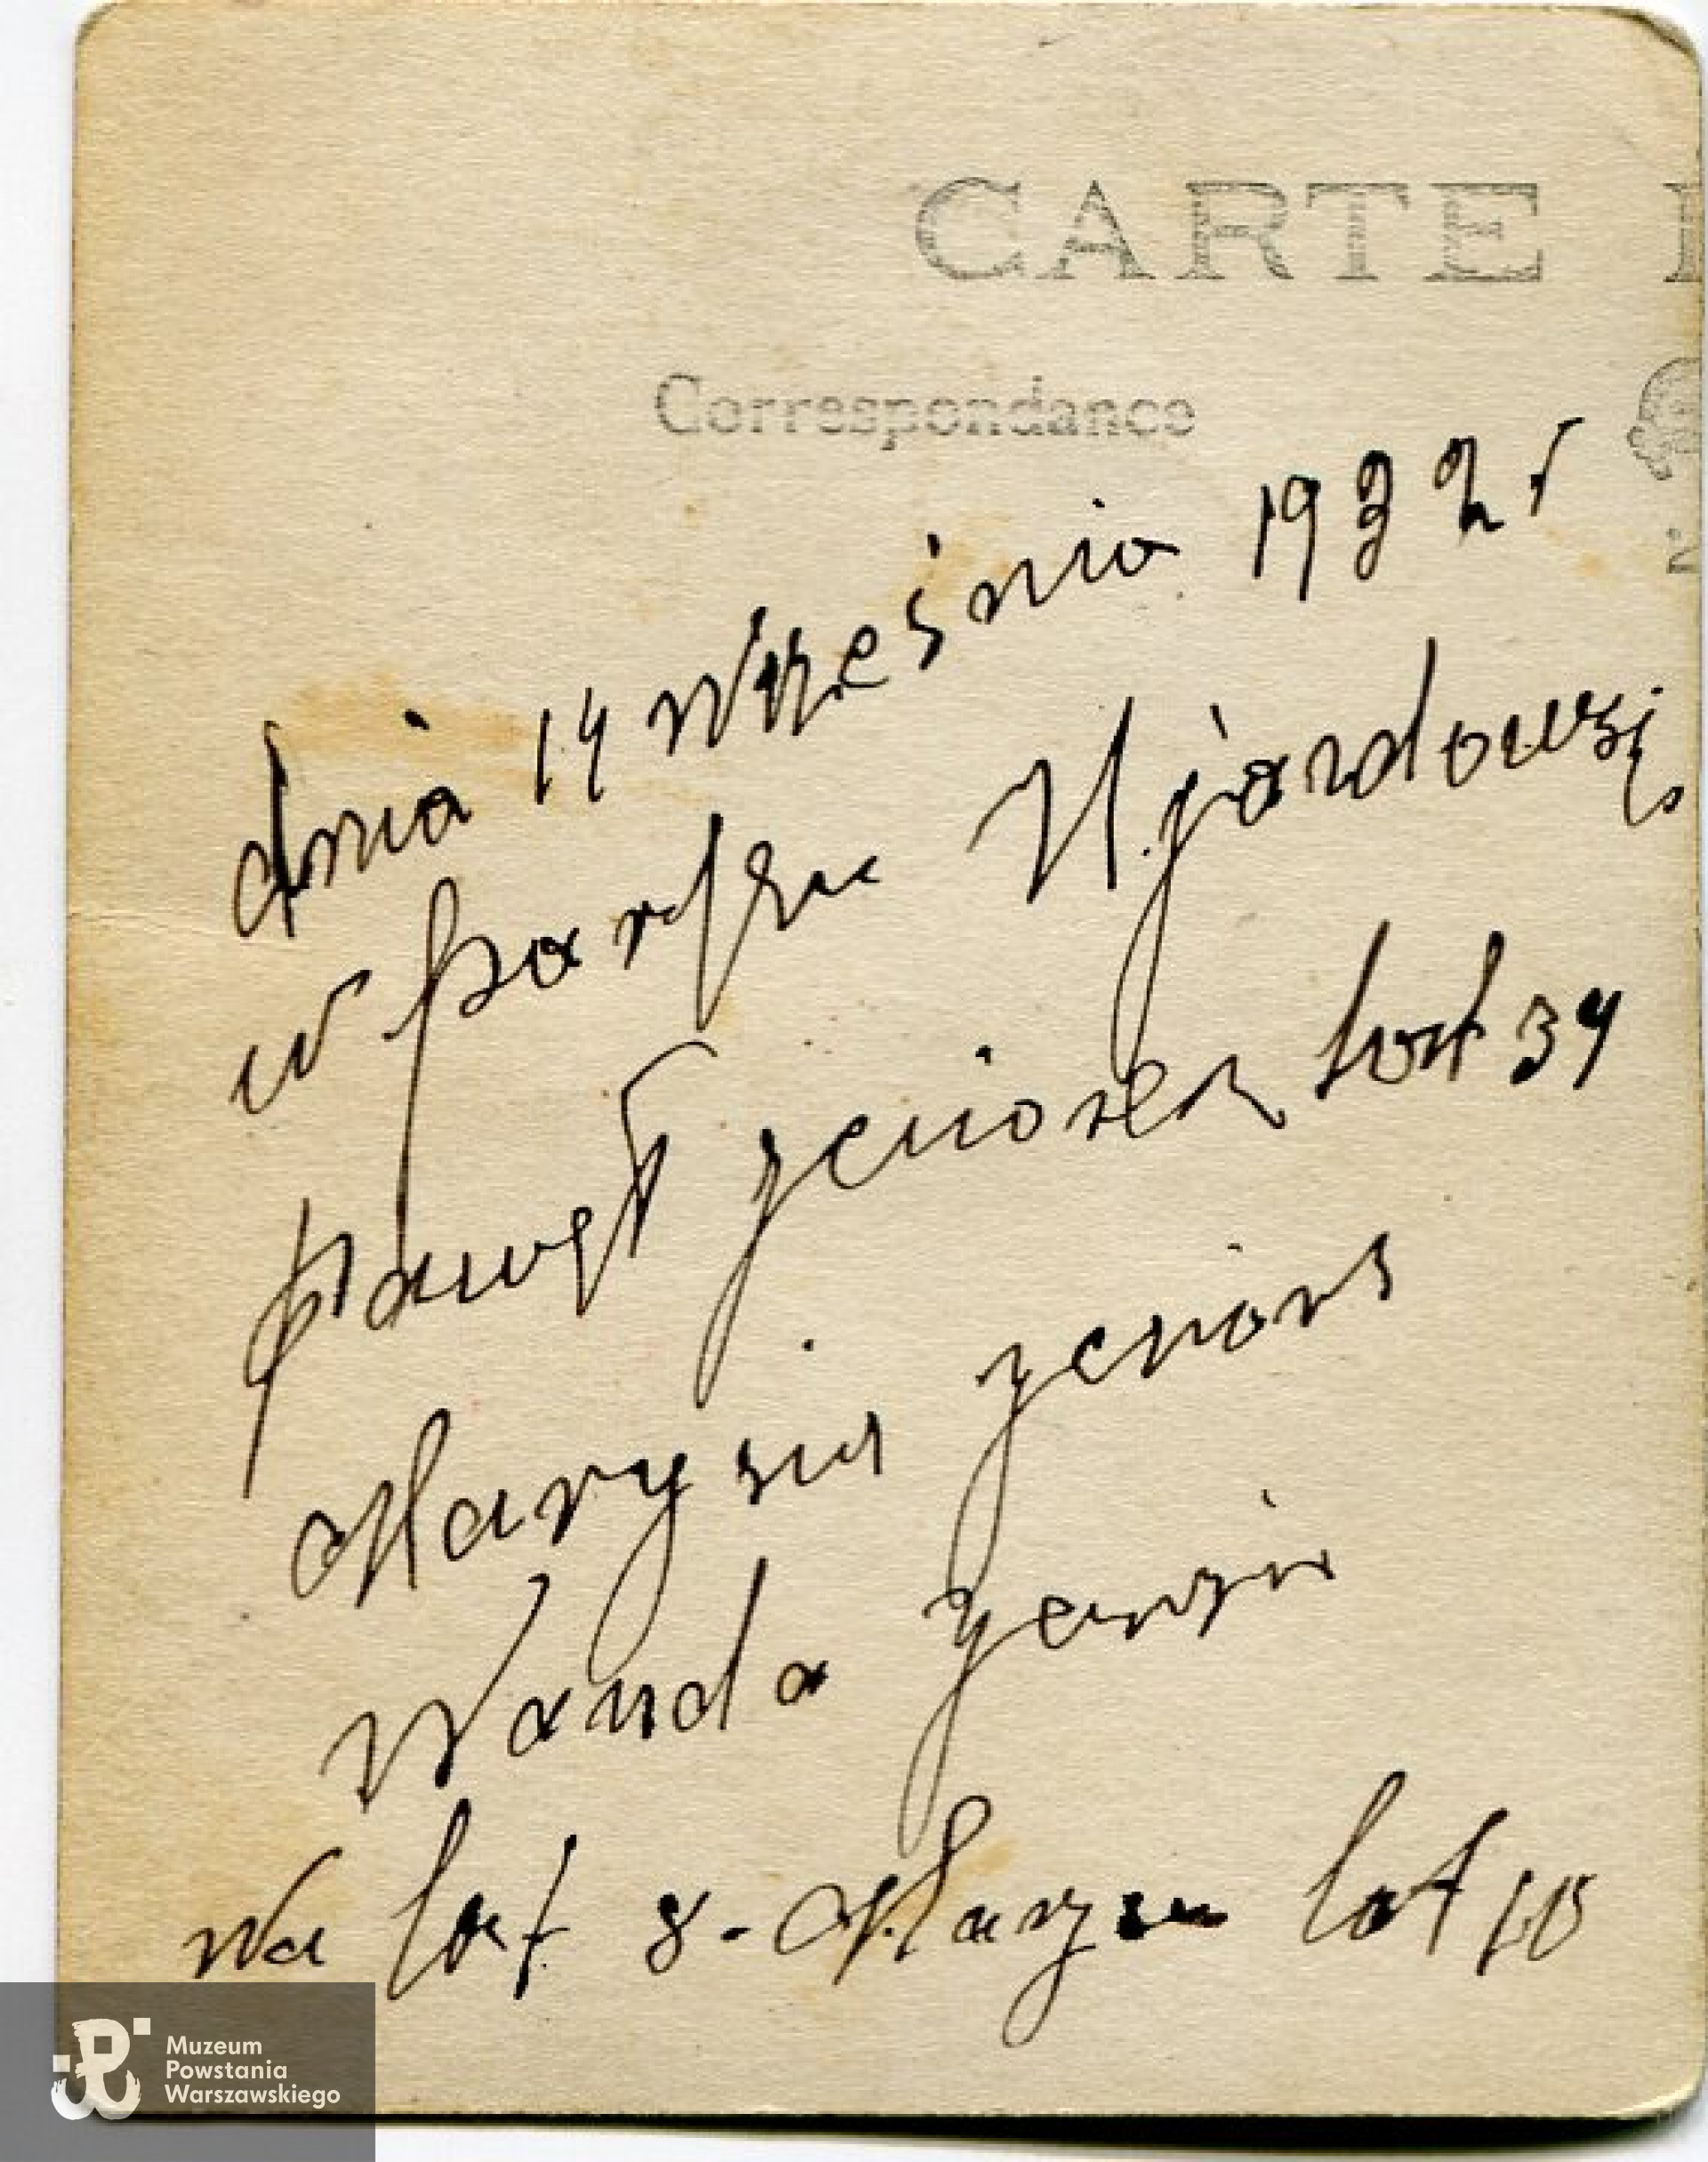 CARTE
Correspondance
dnia 14 Wrześnio 1932 r
w parku Ujazdowsk
Paweł lat 34
Marysia
Wanda
Wa lat 8 - Marysia lat 10
Muzeum
Powstania
Warszawskiego